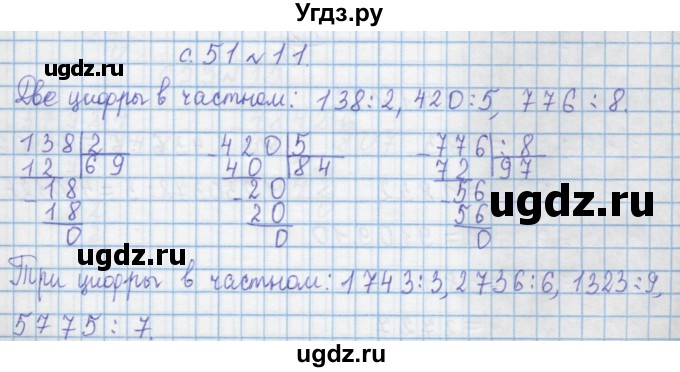 Угдз.ру
с. 51 № 11.
ugdz.ru
ugdz.ru
Две цифры в частном: 138:2, 420:5, 776:8.
138|2 -420|5 -776:|8
12|69 40|84 72|97
-18 -20 -56
18 20 56
0 0 0
ugdz.ru
ugdz.ru
Три цифры в частном: 1743:3, 2736:6, 1323:9,
5775:7.
ugdz.ru
ugdz.ru